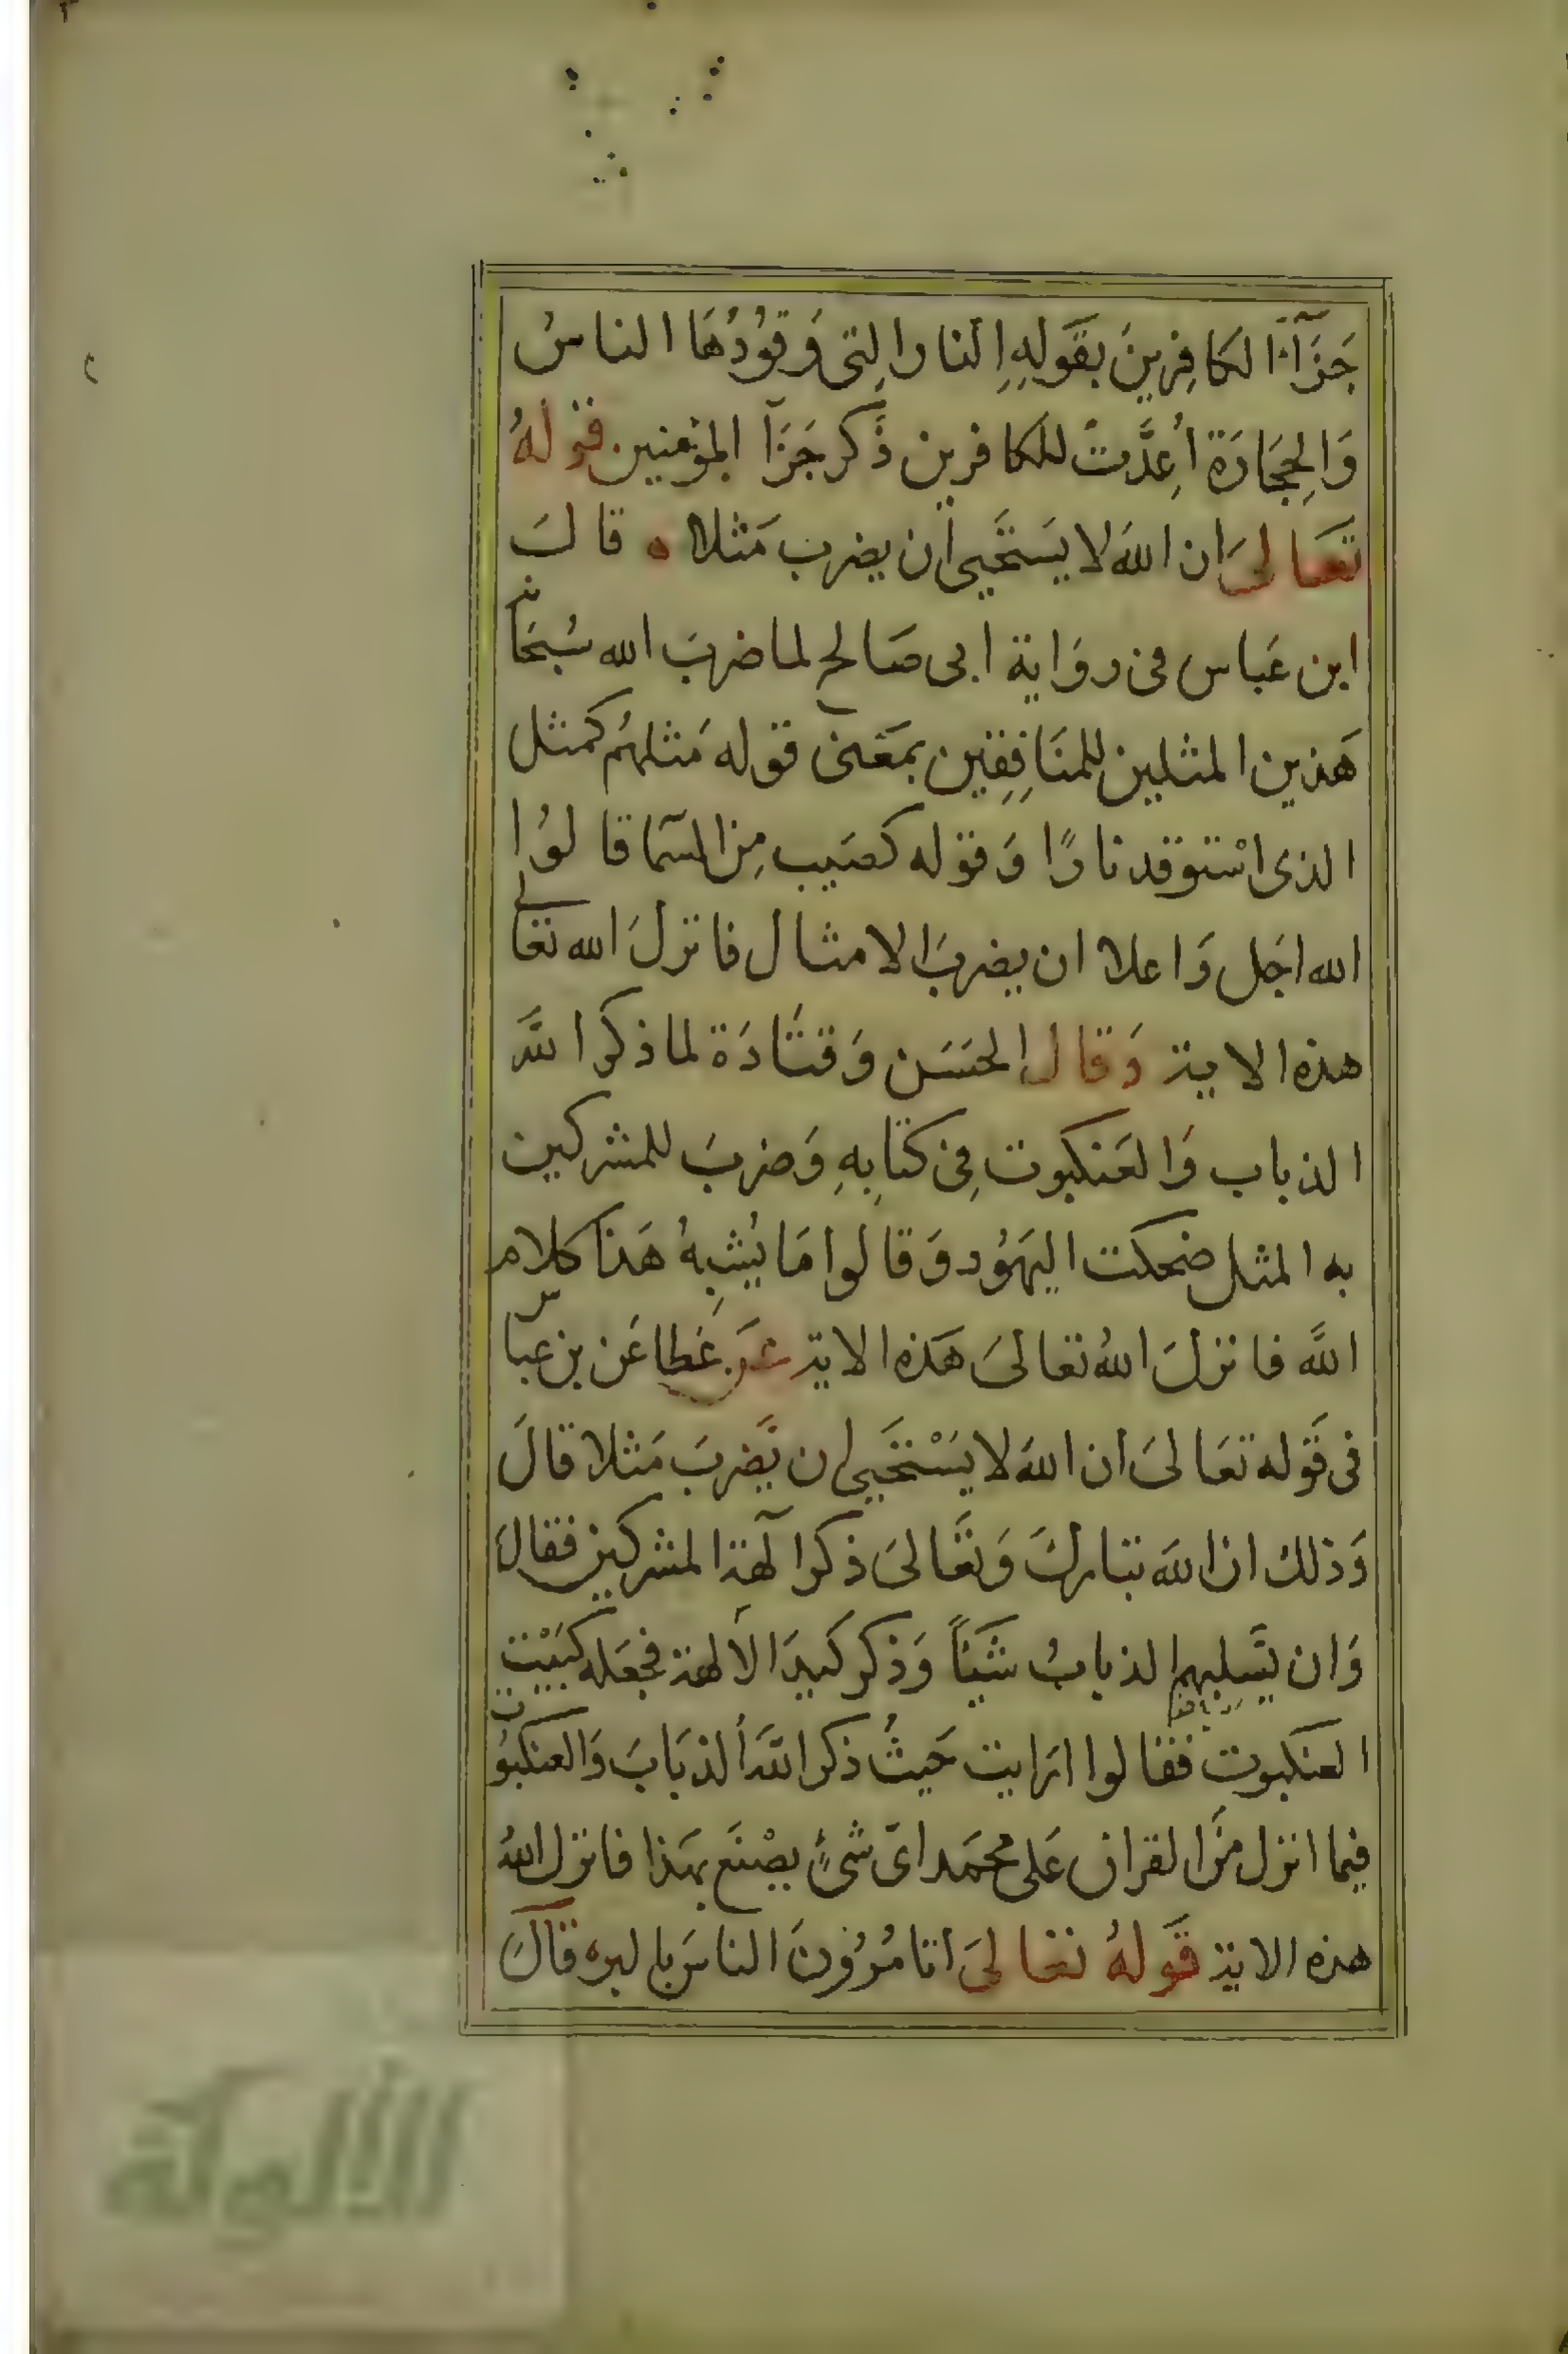 جَزَآءَ الكافِرينَ بقَولِهِ النار التى وَقوُدُهَا الناسُ
وَالحِجَارَة أُعِدَّت للكافرين ذَكر جَزَآ المؤمنين قولهُ
تعَالىَ ان اللهَ لا يسَتحَيى أن يضرب مَثلا ه قالَ
ابن عَباس فى روَاية ابى صَالح لما ضربَ الله سُبحَانه
هَذين المثلين للمنَافِقِين بمَعنىَ قوله مَثلهُم كمثل
الذى اسْتوقد نارًا وَقوله كصَيب مِن السَمآ قالوُا
الله اجَل وَاعلا ان يضربَ الامثال فانزلَ الله تعَالى
هذه الاية وَقال الحسَن وَقتَادَة لما ذكر اللَّه
الذباب وَالعَنكبوت فِى كتَابِهِ وَضربَ للمشركين
به المثل ضحكت اليهَوُد وَقالوا مَا يُشبِهُ هَذا كلام
اللَّه فانزلَ اللهُ تعالىَ هَذه الاية عَن عَطا عَن بن عبَاس
فى قَوله تعَالىَ ان اللهَ لا يسَْتحَيى ان يَّضربَ مَثلا قالَ
وَذلك ان اللهَ تبَاركَ وَتعَالىَ ذكر آلهَة المشركين فقالَ
وَان يَّسلِبهم الذبابُ شَيئاً وَذكر كَيدَ الالِهة فجعَله كبَيْت
العنكبوت فقالوا ارَايت حَيثُ ذكر اللَّه الذبَابَ وَالعنكبوُت
فيما انزل مَن القران عَلى محمَد اىّ شىءٍ يصْنَع بهَذا فانزل اللهُ
هذه الاية قَولهُ تعَالىَ اتامُرُونَ الناسَ بالبره قالَ
الألوكة